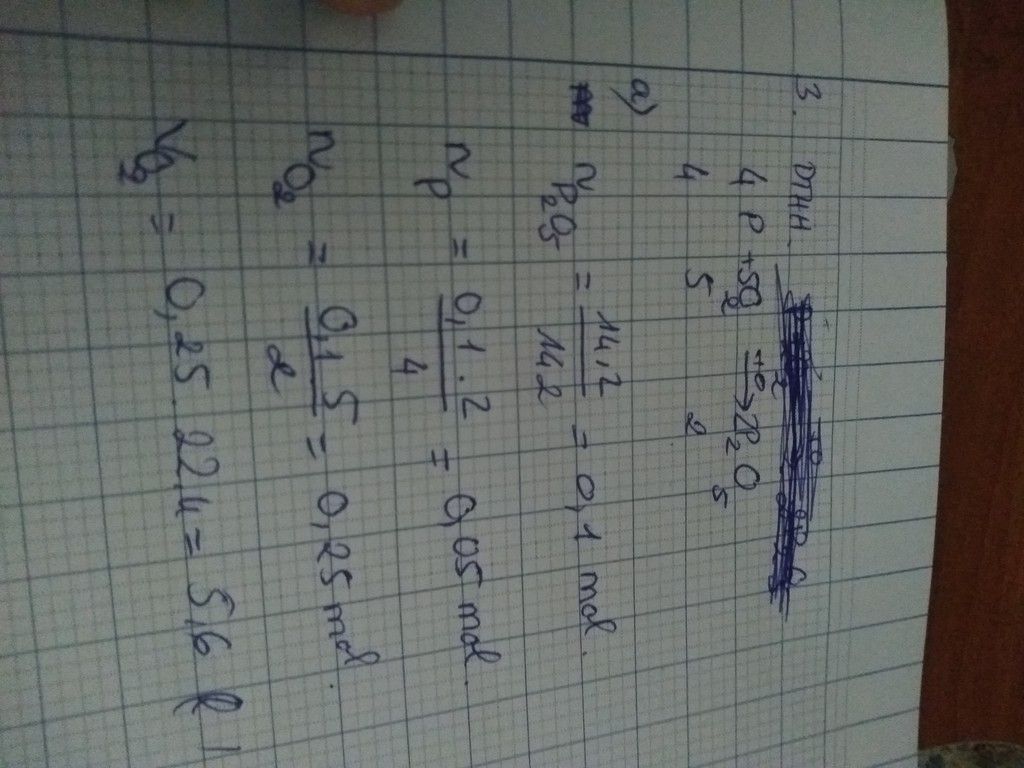 3. PTHH.
4P + 5O2 —t°→ 2P2O5
4 5 2
a)
nP2O5 = 14,2 / 142 = 0,1 mol.
nP = 0,1 . 2 / 4 = 0,05 mol.
nO2 = 0,1 5 / 2 = 0,25 mol.
VO2 = 0,25 . 22,4 = 5,6 l